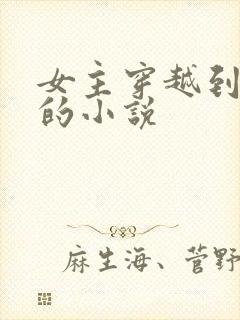 女主穿越到
的小说
麻生海、菅野